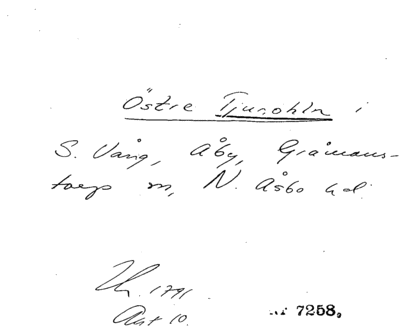 Östre Tjurohln i
S. Vång, Åby, Gråmans-
torp sn, N. Åsbo hd.
1791
Akt 10.
Nr 7258,